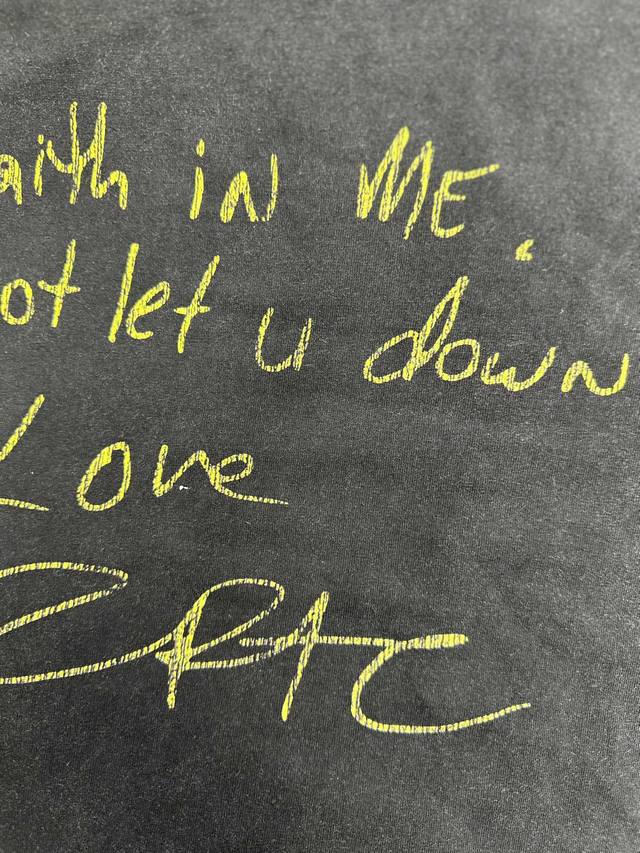 aith in ME.
ot let u down
Love
2PAC